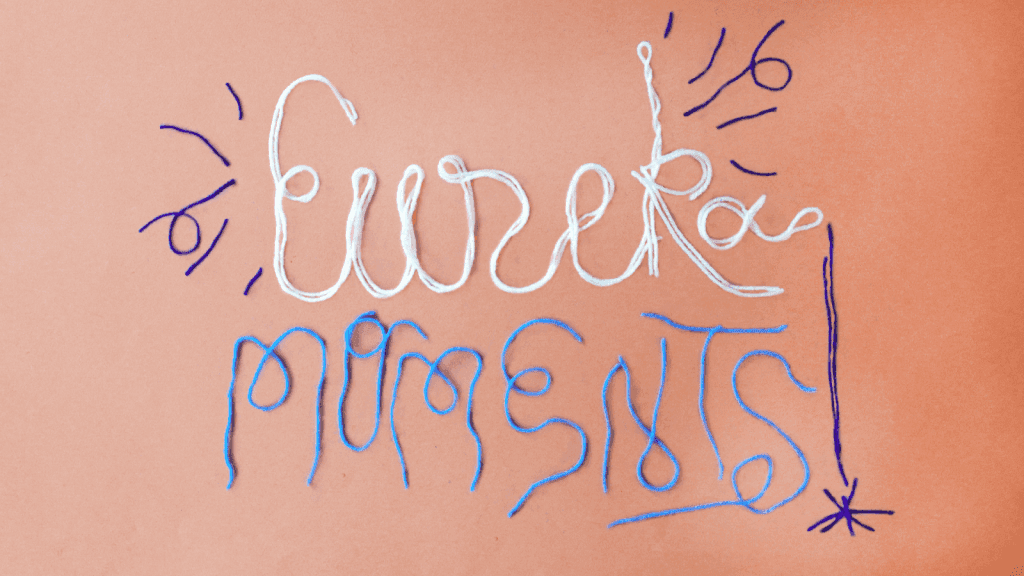 Eureka
MOMENTS